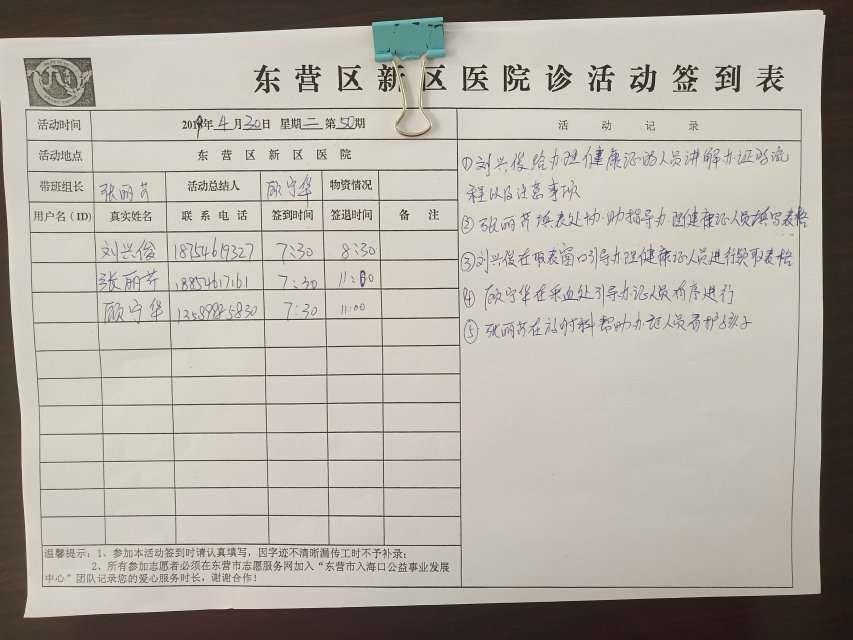 东营区新区医院诊活动签到表
活动时间 2019年4月30日 星期二 第50期 活动记录
活动地点 东营区新区医院
带班组长 张丽芹 活动总结人 顾守华 物资情况
用户名(ID) 真实姓名 联系电话 签到时间 签退时间 备注
刘兴俊 18754619327 7:30 8:30
张丽芹 18854617161 7:30 11:00
顾守华 13589985830 7:30 11:00
①刘兴俊给办理健康证的人员讲解办证的流
程以及注意事项
②张丽芹填表处协助指导办理健康证人员填写表格
③刘兴俊在取表窗口引导办理健康证人员进行领取表格
④顾守华在采血处引导办证人员有序进行
⑤张丽芹在放射科帮助办证人员看护孩子
温馨提示:1、参加本活动签到时请认真填写,因字迹不清晰漏传工时不予补录;
2、所有参加志愿者必须在东营市志愿服务网加入“东营市入海口公益事业发展
中心”团队记录您的爱心服务时长,谢谢合作!